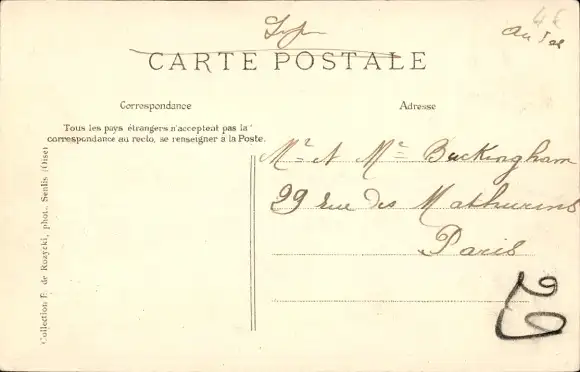 4€
CARTE POSTALE
Correspondance
Adresse
Tous les pays étrangers n'acceptent pas la
correspondance au recto, se renseigner à la Poste.
Mr et Me Buckingham
29 rue des Mathurins
Paris
Collection F. de Rozycki, phot. Senlis (Oise)